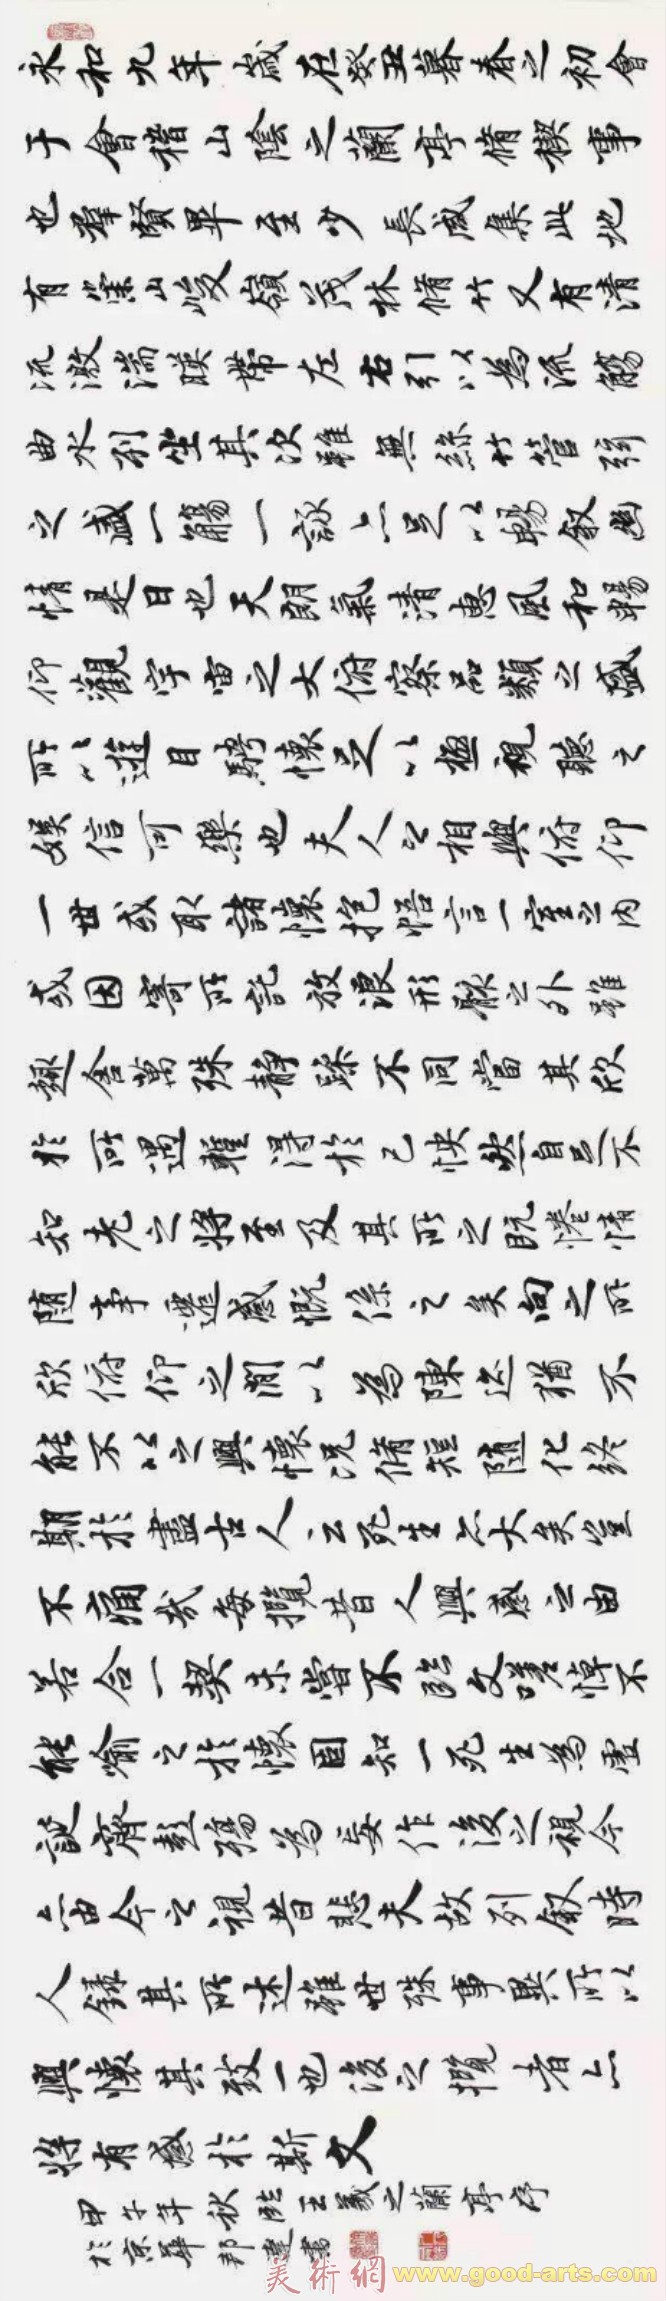 永和九年歲在癸丑暮春之初會
于會稽山陰之蘭亭脩禊事
也羣賢畢至少長咸集此地
有崇山峻嶺茂林脩竹又有清
流激湍暎帶左右引以為流觴
曲水列坐其次雖無絲竹管弦
之盛一觴一詠亦足以暢叙幽
情是日也天朗氣清惠風和暢
仰觀宇宙之大俯察品類之盛
所以遊目騁懷足以極視聽之
娛信可樂也夫人之相與俯仰
一世或取諸懷抱悟言一室之內
或因寄所託放浪形骸之外雖
趣舍萬殊靜躁不同當其欣
於所遇輒得於己怏然自足不
知老之將至及其所之既惓情
隨事遷感慨係之矣向之所
欣俯仰之間以為陳迹猶不
能不以之興懷況脩短隨化終
期於盡古人云死生亦大矣豈
不痛哉每攬昔人興感之由
若合一契未嘗不臨文嗟悼不
能喻之於懷固知一死生為虛
誕齊彭殤為妄作後之視今
亦由今之視昔悲夫故列叙時
人錄其所述雖世殊事異所以
興懷其致一也後之攬者亦
將有感於斯文
甲午年秋臨王羲之蘭亭序
於京華邦建書
美術網 www.good-arts.com